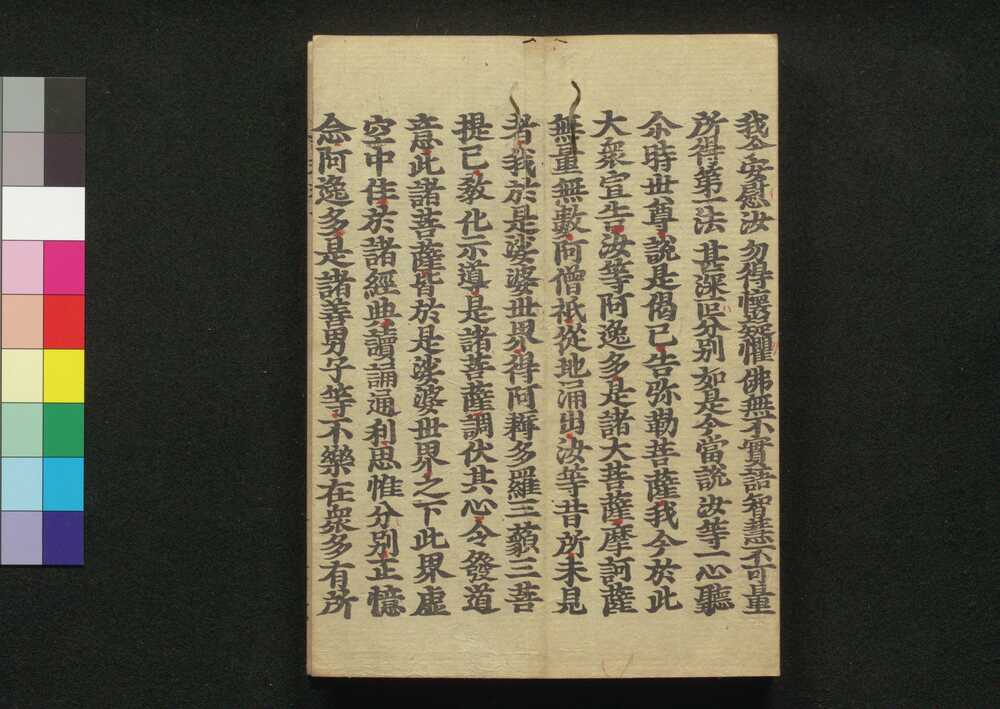 我今安慰汝 勿得懷疑懼 佛無不實語 智慧不可量
所得第一法 甚深叵分別 如是今當說 汝等一心聽
尒時世尊說是偈已告弥勒菩薩我今於此
大衆宣告汝等阿逸多是諸大菩薩摩訶薩
無量無數阿僧祇從地涌出汝等昔所未見
者我於是娑婆世界得阿耨多羅三藐三菩
提已教化示導是諸菩薩調伏其心令發道
意此諸菩薩皆於是娑婆世界之下此界虛
空中住於諸經典讀誦通利思惟分別正憶
念阿逸多是諸善男子等不樂在衆多有所